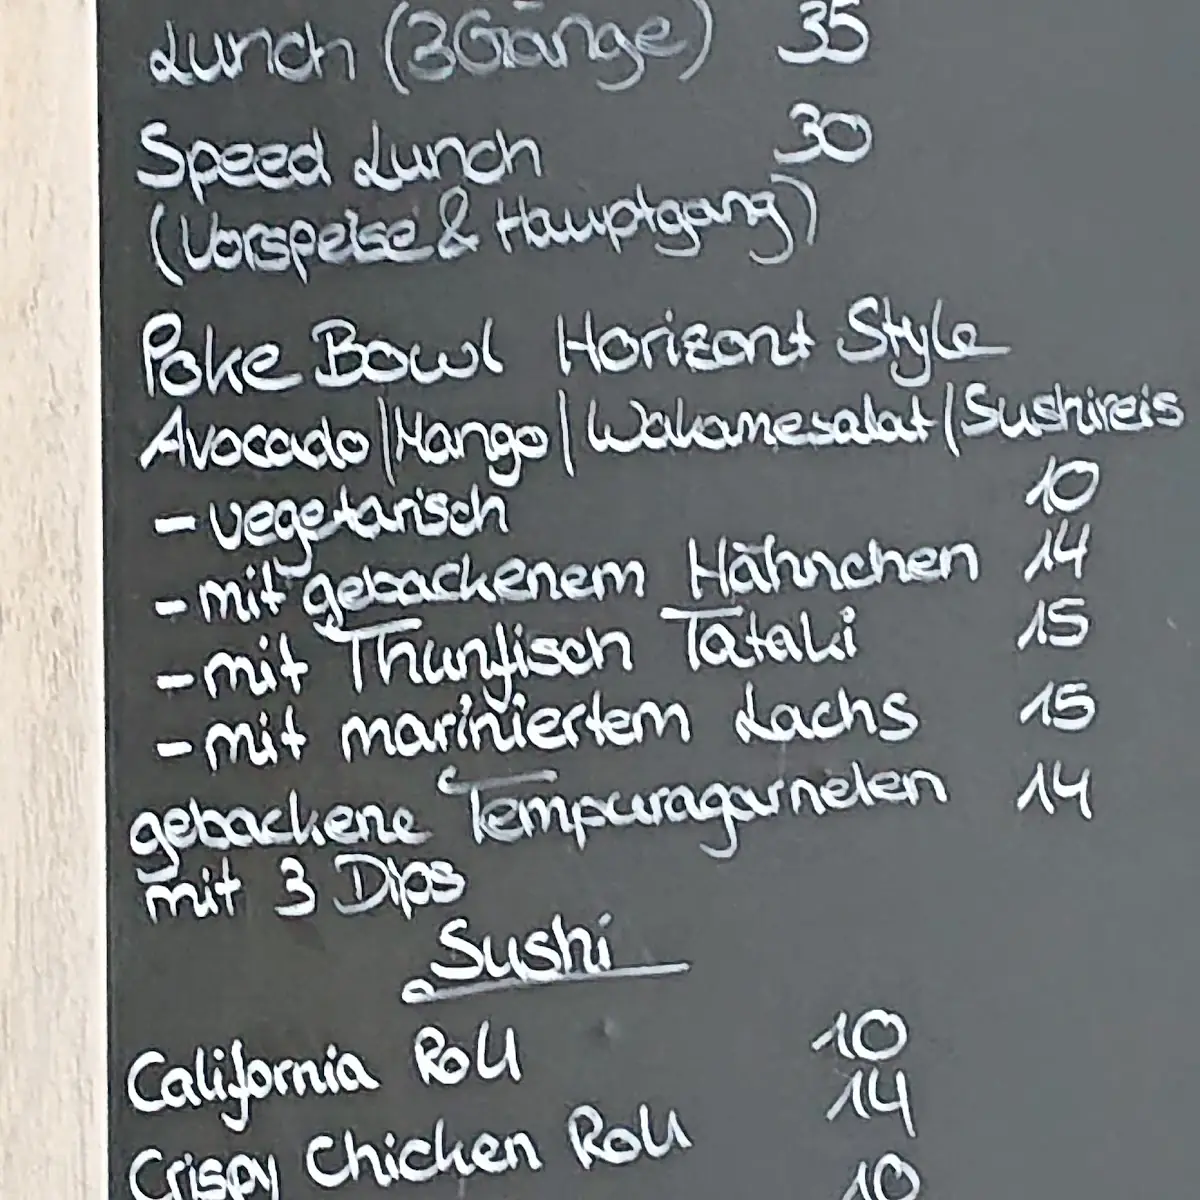 Lunch (3Gänge) 35
Speed Lunch 30
(Vorspeise & Hauptgang)
Poke Bowl Horizont Style
Avocado|Mango|Wakamesalat|Sushireis
- vegetarisch 10
- mit gebackenem Hähnchen 14
- mit Thunfisch Tataki 15
- mit mariniertem Lachs 15
gebackene Tempuragarnelen 14
mit 3 Dips
Sushi
California Roll 10
Crispy Chicken Roll 14
10